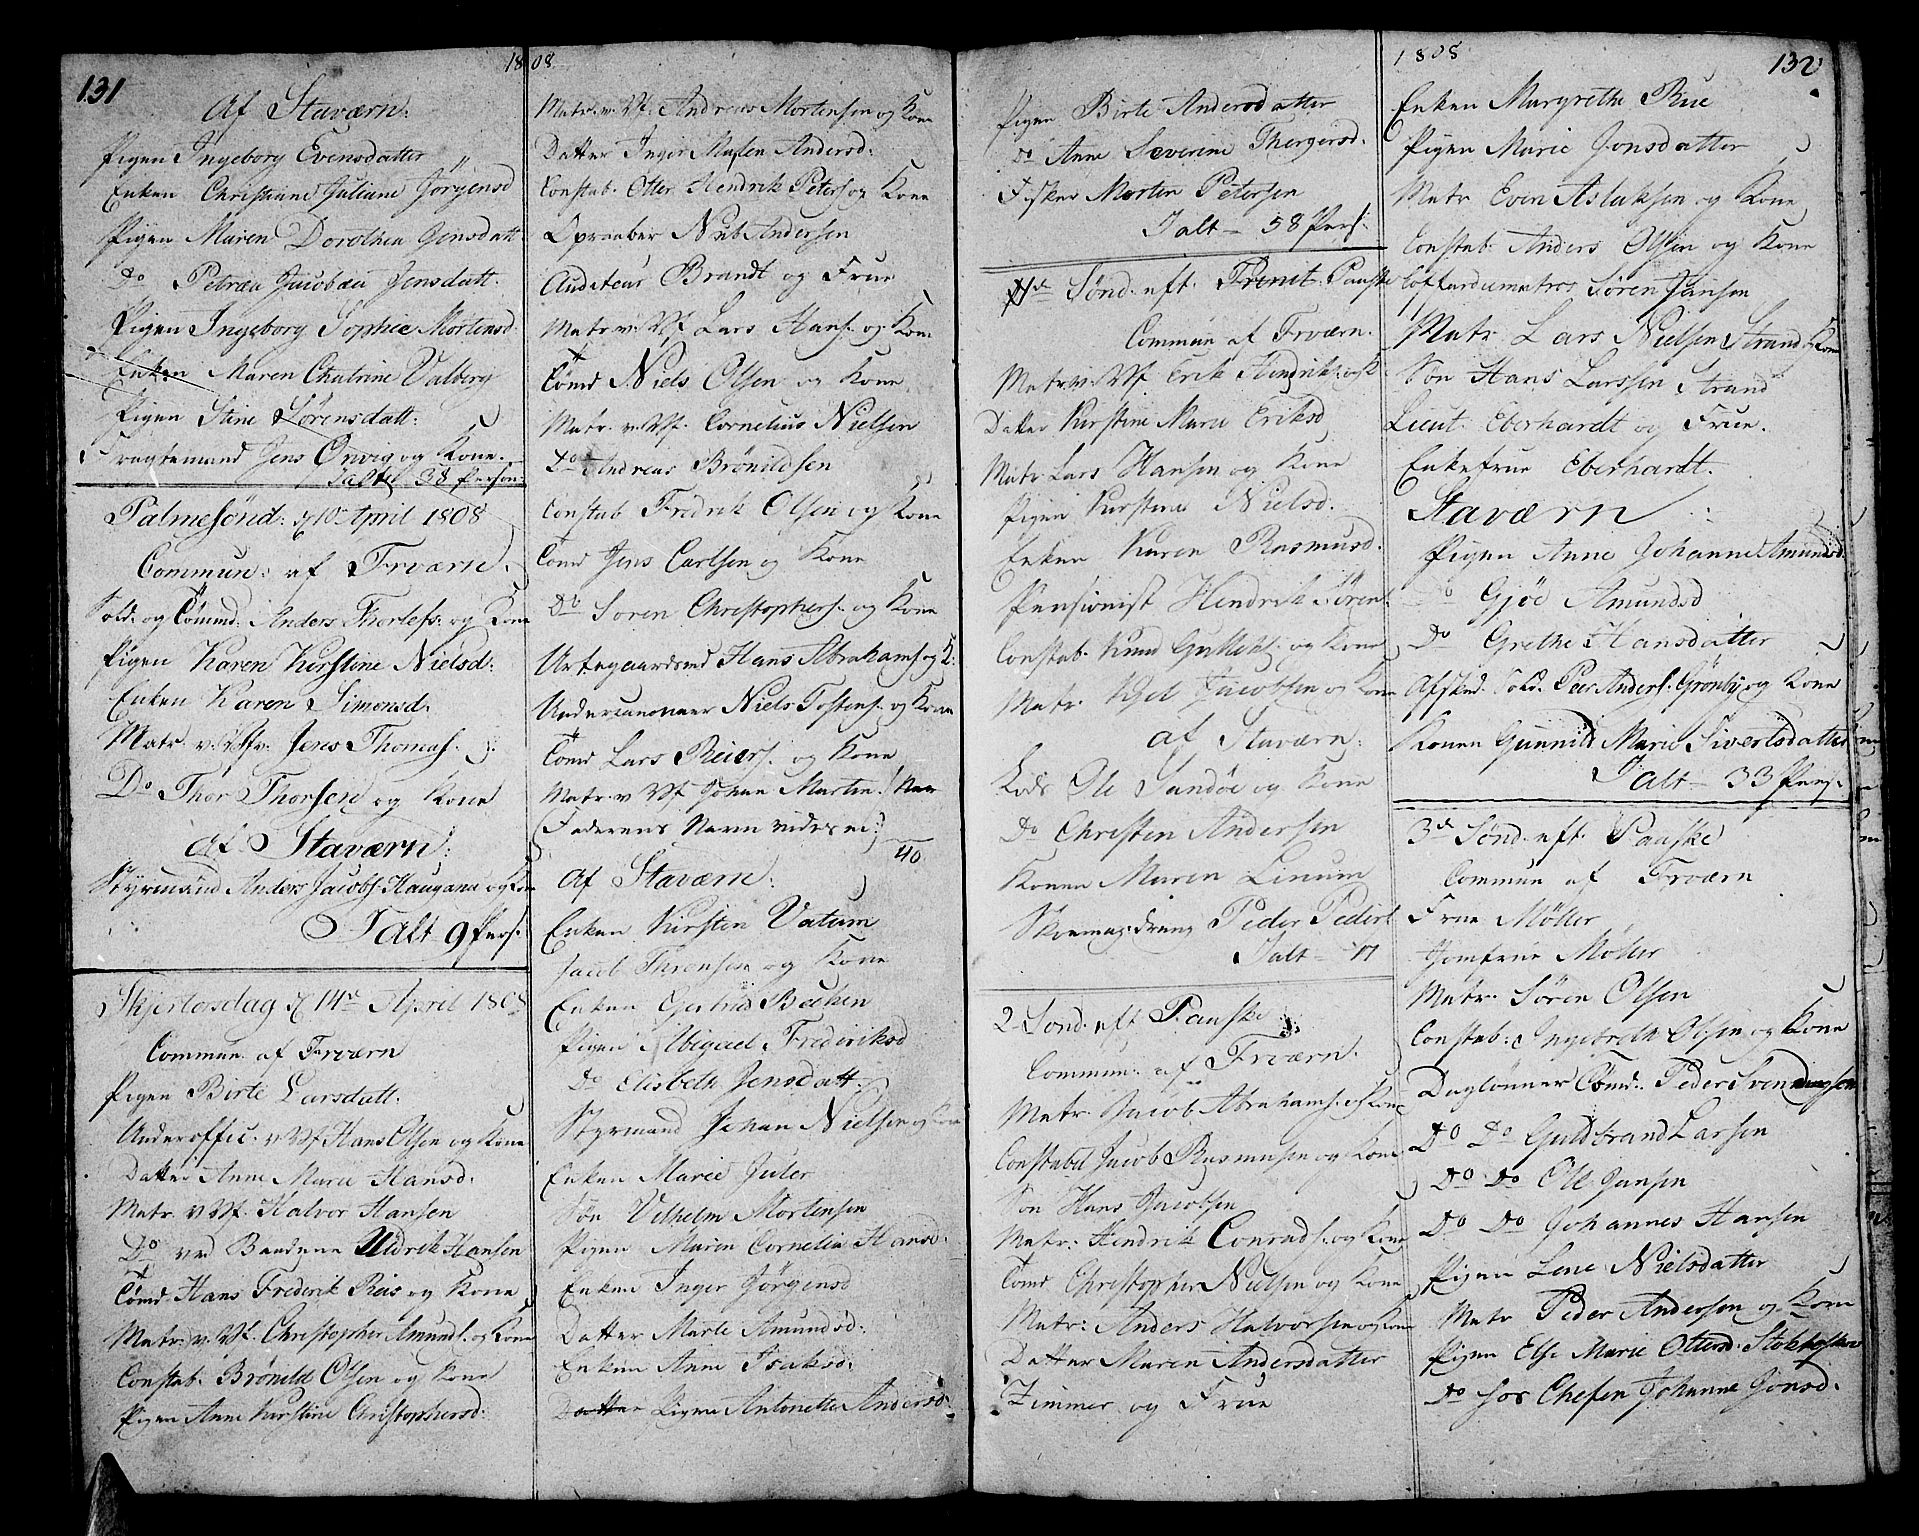 131
1808
Af Staværn:
Pigen Ingeborg Evensdatter
Enken Christiane Juliane Jörgensd
Pigen Maren Dorothea Jensdatt.
Do Petræa Jacobæa Jensdatt.
Pigen Ingeborg Sophie Mortensd.
Enken Maren Chatrine Valberg
Pigen Stine Sörensdatt:
Fragtemand Jens Örvig og Kone.
Ialt 38 Person:
Palmesönd: d 10 April 1808
Commun: af Frværn.
Sold. og Tömmd. Anders Thorlefs: og Kone
Pigen Karen Kirstine Nielsd:
Enken Karen Simonsd.
Matr. v. Vf. Jens Thomas.
Do Thor Thorsen og Kone
Af Staværn:
Styrmand Anders Jacobs. Haugane og Kone
Ialt 9 Pers.
Skjertorsdag d 14de April 1808
Commun. af Frværn
Pigen Birte Larsdatt.
Underoffic. v Vf Hans Olsen og Kone
Datter Anne Marie Hansd.
Matr. v Vf. Halvor Hansen
Do ved Bandene Uldrik Hansen
Tömd. Hans Frederik Reis og Kone
Matr. v. Vf. Christopher Amunds. og Kone
Constab. Brönild Olsen og Kone
Pigen Anne Kirstine Christophersd:
Matr. v. Vf. Andreas Mortensen og Kone
Datter Inger Malen Andersd:
Constab. Otter Hendrik Peters og Kone
Opraaber Neub Andersen
Auditeur Brandt og Frue
Matr v. Vf Lars Hans. og Kone
Tömd Niels Olsen og Kone
Matr. v. Vf. Cornelius Nielsen
Do Andreas Brönildsen
Constab Fredrik Olsen og Kone
Tömd Jens Carlsen og Kone
Do Sören Christophers. og Kone
Urtegaardsmd Hans Abrahams. og K:
Undercanoneer Niels Tostens. og Kone
Tömd Lars Reiers. og Kone
Matr. v Vf Johan Martin
(Faderens Navn vides ei:)
40
Af Staværn:
Enken Kirsten Vatum
Jacob Thronsen og Kone
Enken Gertrud Beehen
Pigen Abigael Frederiksd
Do Elisbeth Jensdatt.
Styrmand Johan Nielsen og Kone
Enken Marie Juler
Sön Vilhelm Mortensen
Pigen Maren Cornelia Hansd.
Enken Inger Jörgensd
Datter Marte Amundsd:
Enken Anne Isaksd:
Datter Pigen Antonette Andersd.
132
1808
Pigen Birte Andersdatter
Do Anne Severine Thergersd.
Fisker Morten Petersen
Ialt - 58 Pers:
Sönd. eft. Trenit. Paaske
Commun af Frværn.
Matr v. Vf. Erik Hendriks. og K.
Datter Kirstine Marie Eriksd
Matr Lars Hansen og Kone
Pigen Kirstine Nielsd.
Enken Karen Rasmusd.
Pensionist Hendrik Sörens.
Constab. Knud Gulleks. og Kone
Matr. Axel Jacobsen og Kone
af Staværn:
Lods Ole Sandöe og Kone
Do Christen Andersen
Konen Maren Linum
Skomag. dreng Peder Peders
Ialt - 17
2 Sond. eft Paaske
Commun. af Frværn.
Matr. Jacob Abrahams. og Kone
Constabel Jacob Rasmusen og Kone
Sön Hans Jacobsen
Matr: Hendrik Conrads. og Kone
Tömd Christopher Nielsen og Kone
Matr: Anders Halvorsen og Kone
Datter Maren Andersdatter
Zimmer og Frue
Enken Margrethe Rue
Pigen Marie Jonsdatter
Matr Even Aslaksen og Kone
Constab. Anders Olsen og Kone
Coffardimatros Sören Jansen
Matr Lars Nielsen Strand og Kone
Sön Hans Larssen Strand
Lieut. Eberhardt og Frue.
Enkefrue Eberhardt.
Staværn
Pigen Anne Johanne Amundsd.
Do Gjöe Amundsd
Do Grethe Hansdatter
Afsked. Sold. Peer Anders. Grönby og Kone
Konen Gunnild Marie Sivertsdatter
Ialt - 33 Pers.
3de Sönd. eft. Paaske
Commun af Frværn
Frue Möller
Jomfrue Möller
Matr. Sören Olsen
Constab: Ingebreth Olsen og Kone
Daglönner Tömd.. Peder Svenningsen
Do Do Guldbrand Larsen
Do Do Ole Jansen
Do Do Johannes Hansen
Pigen Lene Nielsdatter
Matr Peder Andersen og Kone
Pigen Else Marie Ottersd. Stokholm
Do hos Chefen Johanne Jonsd.